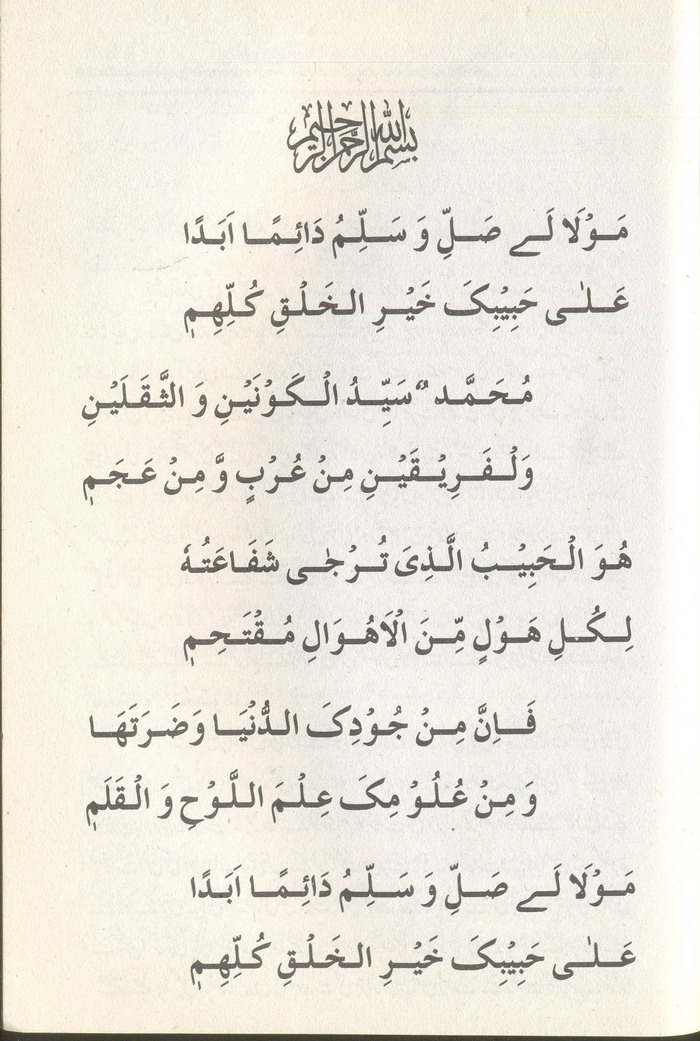 بسم الله الرحمن الرحيم
مَوْلَا لَے صَلِّ وَ سَلِّمُ دَائِمًا اَبَدًا
عَلٰی حَبِيْبِکَ خَيْرِ الخَلْقِ کُلِّهِمٖ
مُحَمَّدﷺ سَيِّدُ الْکَوْنَيْنِ وَ الثَّقَلَيْنِ
وَلْفَرِيْقَيْنِ مِنْ عُرْبٍ وَّ مِنْ عَجَمٖ
هُوَ الْحَبِيْبُ الَّذِیَ تُرْجٰی شَفَاعَتُهٗ
لِکُلِ هَوْلٍ مِّنَ الْاَهْوَالِ مُقْتَحِمٖ
فَاِنَّ مِنْ جُوْدِکَ الدُّنْيَا وَضَرَتَهَا
وَ مِنْ عُلُوْ مِکَ عِلْمَ اللَّوْحِ وَ الْقَلَمٖ
مَوْلَا لَے صَلِّ وَ سَلِّمُ دَائِمًا اَبَدًا
عَلٰی حَبِيْبِکَ خَيْرِ الخَلْقِ کُلِّهِمٖ